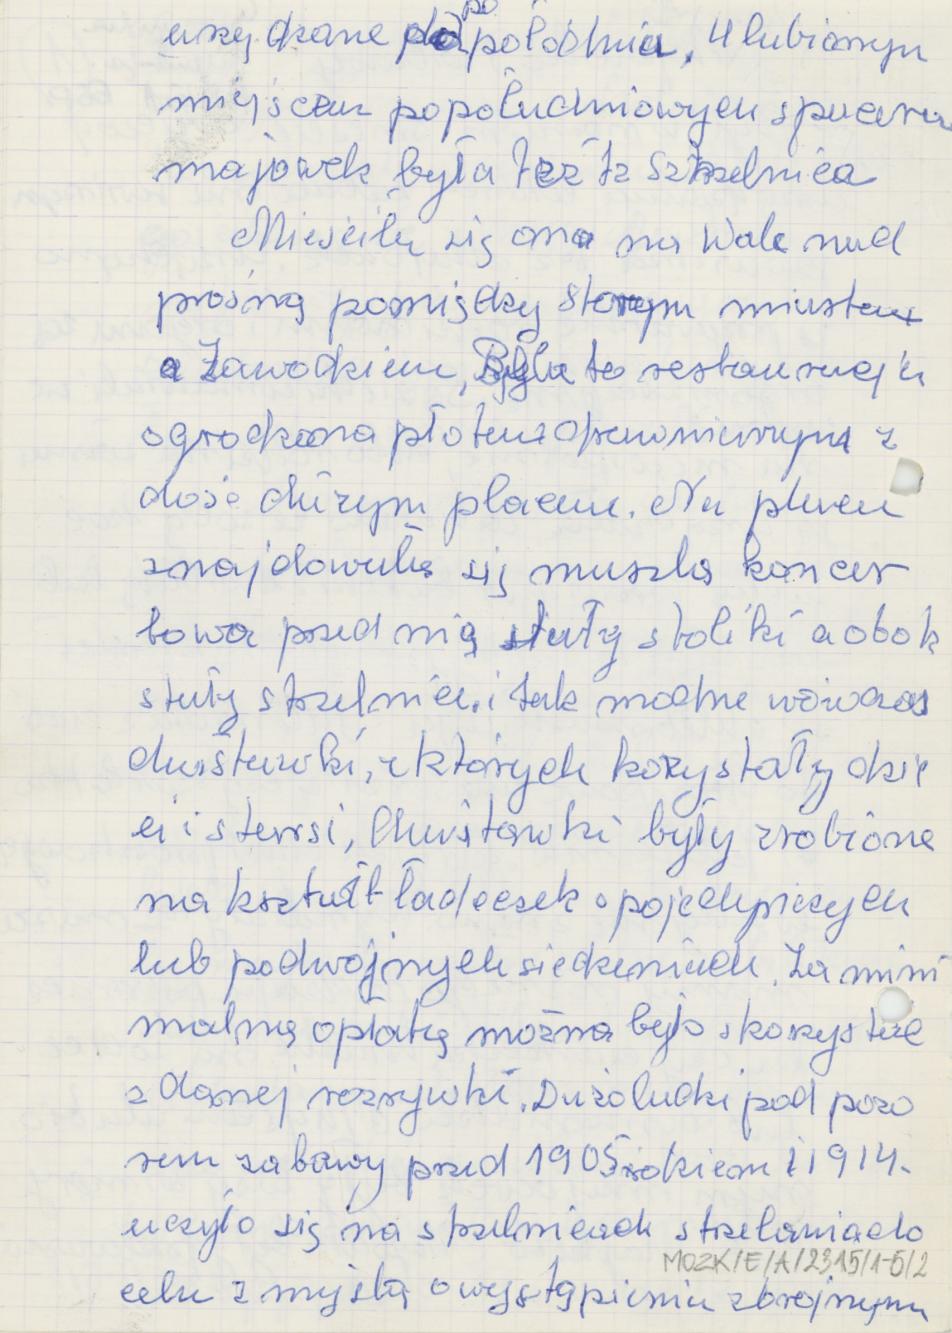 po
urządzane popołudnia, Ulubionym
miejscem popołudniowych spacerów
majowek była też tz Strzelnica
Mieściła się ona na Wale nad
prosną pomiędzy starym miastem
a Zawodziem, Była to restauracja
ogrodzona płotem drewnianym z
dość dużym placem. Na placu
znajdowała się muszla koncer
towa przed nią stały stoliki a obok
stały strzelnice i tak modne wówczas
chuśtawki, z których korzystały dzie
ci i starsi, Chuśtawki były zrobione
na kształt łódeczek o pojedynczych
lub podwójnych siedzeniach. Za mini
malną opłatą można było skorzystać
z danej rozrywki. Dużo ludzi pod pozo
rem zabawy przed 1905 rokiem i 1914.
uczyło się na strzelnicach strzelania do
MOZK/E/A/2315/1-6/2
celu z myślą o wystąpieniu zbrojnym